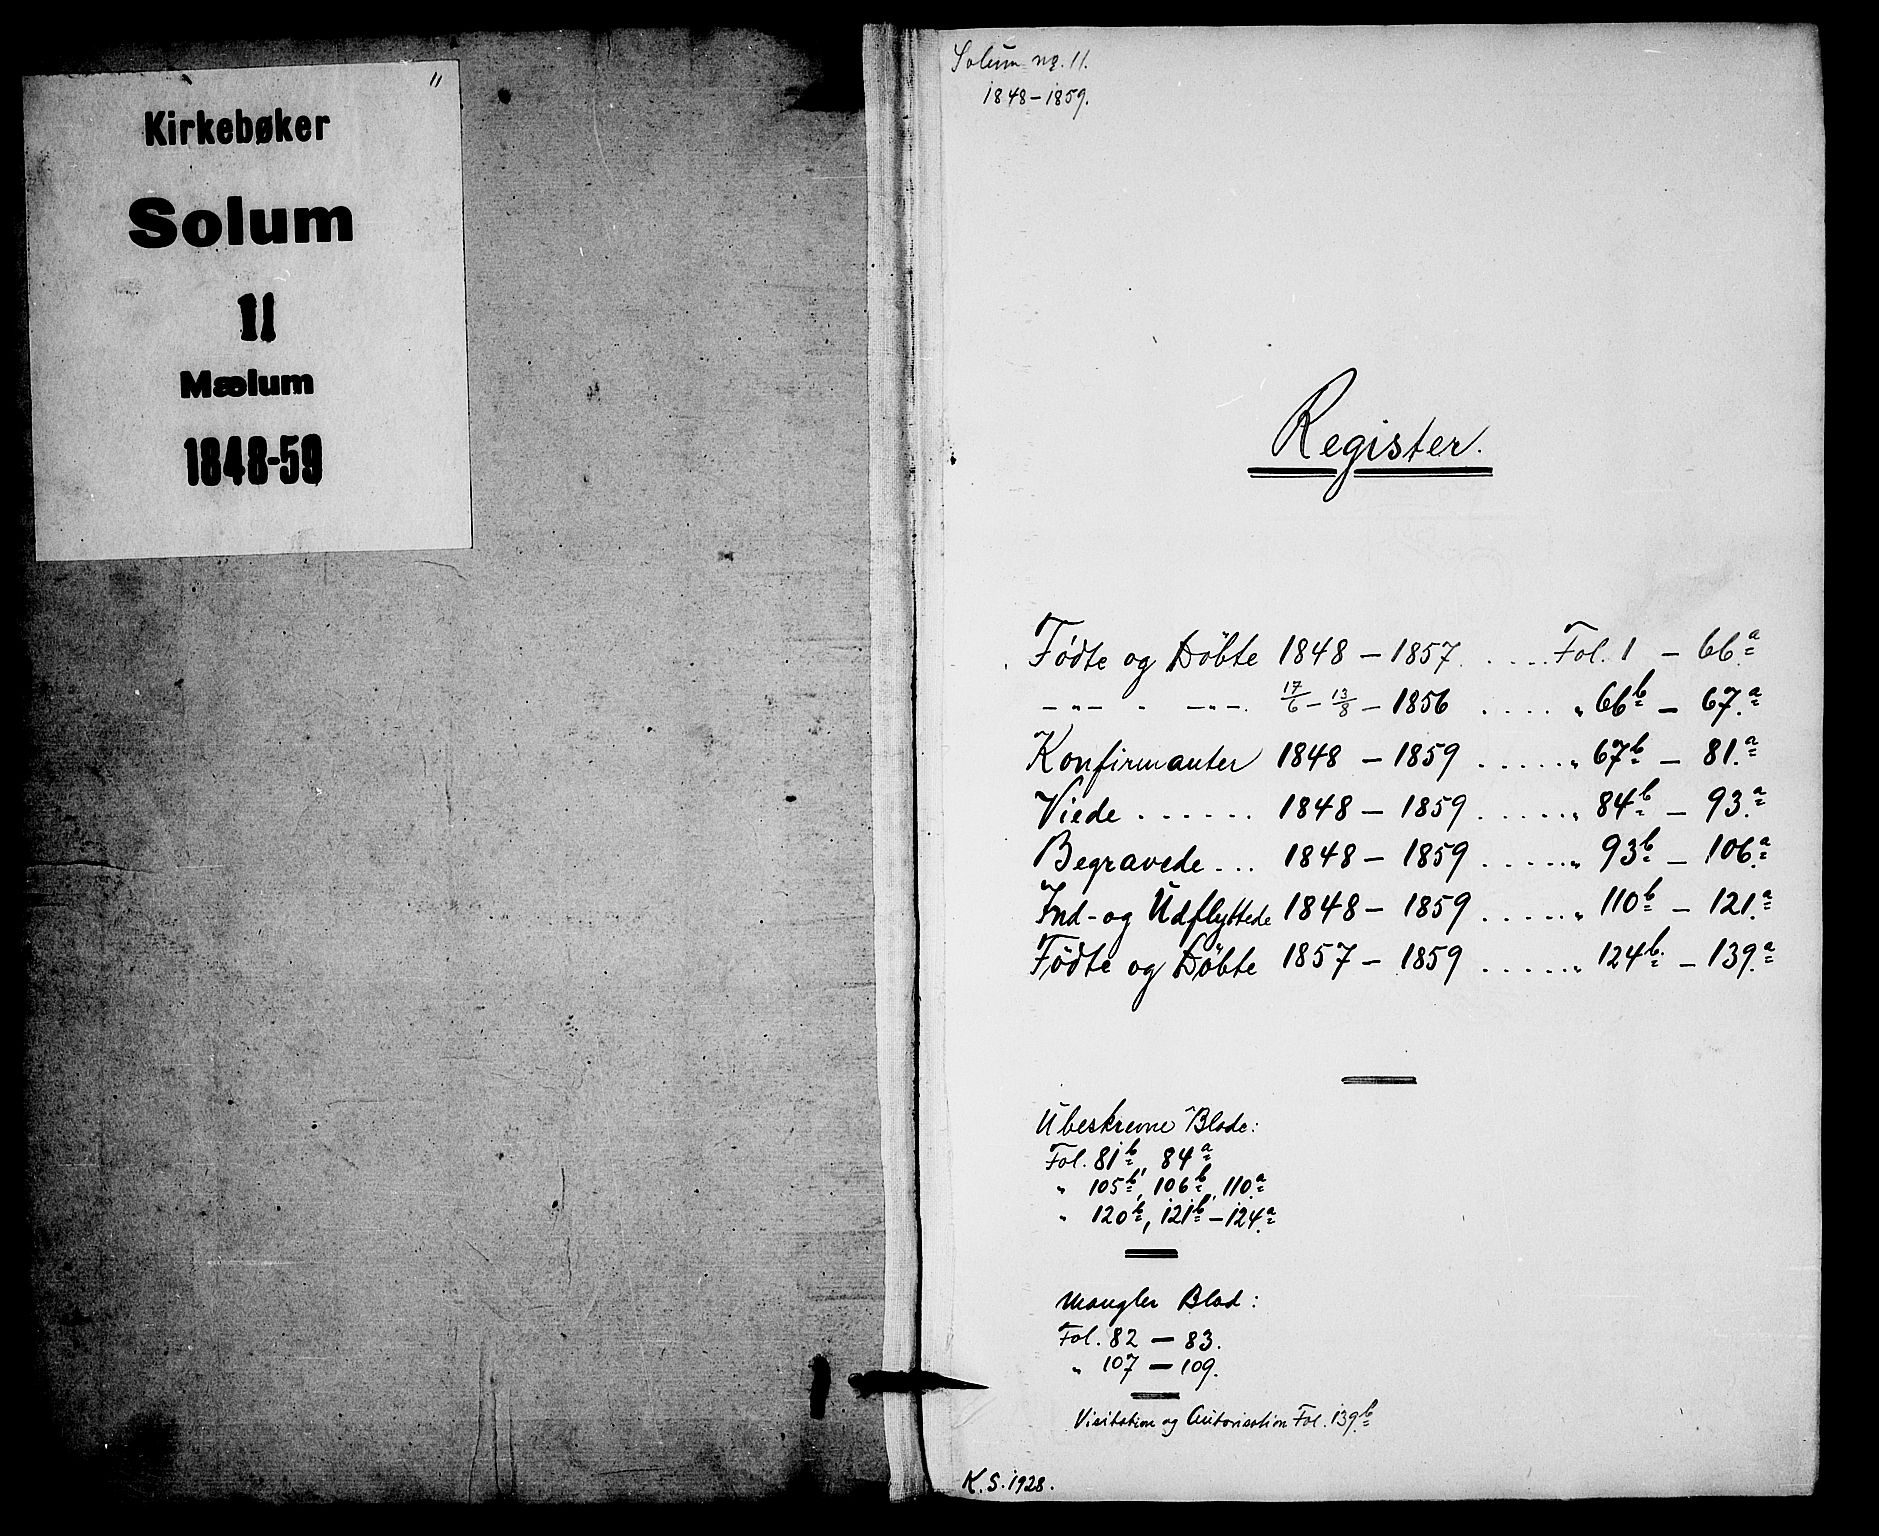 11
Kirkebøker
Solum
11
Mælum
1848-59
Solum nr. 11.
1848-1859.
Register.
Födte og Döbte 1848 - 1857. ..... Fol. 1 - 66.a
- " - " - " -. 17/6 - 13/8 - 1856 ..... " 66b - 67.a
Konfirmanter 1848 - 1859 ...... " 67b - 81.a
Viede ...... 1848 - 1859 ...... " 84b - 93.a
Begravede ... 1848 - 1859 ...... " 93b - 106.a
Ind- og Udflyttede 1848 - 1859 ...... " 110b - 121.a
Födte og Döbte 1857 - 1859 ...... " 124b - 139.a
Ubeskrevne Blade:
Fol. 81b, 84a
" 105b, 106b, 110.a
" 120b, 121b - 124.a
Mangler Blad:
Fol. 82 - 83.
" 107 - 109.
Visitation og Autorisation Fol. 139b
K. S. 1928.